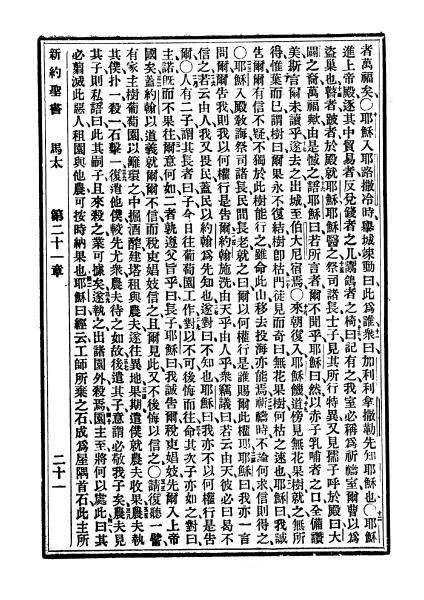 者萬福矣〇耶穌入耶路撒冷時舉城竦動曰此爲誰衆曰加利利拿撒勒先知耶穌也〇耶穌
進上帝殿逐其中貿易者反兌錢者之几鬻鴿者之椅曰記有之我室必稱爲祈禱室爾曹以爲
盜巢也瞽者跛者於殿就耶穌耶穌醫之祭司諸長士子見其所行特異又見孺子呼於殿曰大
闢之裔萬福歟由是憾之謂耶穌曰若所言者爾不聞乎耶穌曰然以赤子乳哺者之口全備讚
美斯言爾未讀乎遂去之出城至伯大尼宿焉〇來朝復入耶穌饑道傍見無花果樹就之無所
得惟葉而已謂樹曰爾果永不復結樹卽枯門徒見而奇曰無花果樹何枯之速也耶穌曰我誠
告爾爾有信不疑不獨於此樹能行之雖命此山移去投海亦能焉祈禱時不論何求信則得之
〇耶穌入殿敎誨祭司諸長民間長老就之曰爾以何權行是誰賜爾此權耶耶穌曰我亦一言
問爾爾告我則我以何權行是告爾約翰施洗由天乎由人乎衆竊議曰若云由天彼必曰曷不
信之若云由人我又畏民蓋民以約翰爲先知也遂對曰不知也耶穌曰我亦不以何權行是告
爾〇人有二子謂其長者曰子今日往葡萄園工作對以不可後悔而往命其次子亦如之對曰
主諾旣而不果往爾意何如二者孰遵父旨乎曰長子耶穌曰我誠告爾稅吏娼妓先爾入上帝
國矣蓋約翰以道義就爾爾不信而稅吏娼妓信之且爾見此又不後悔以信之〇請復聽一譬
有家主樹葡萄園以籬環之中掘酒醡建塔租與農夫遂往異地果期遣僕就農夫收果農夫執
其僕扑一殺一石擊一復遣他僕較先尤衆農夫待之如故後遣其子意謂必敬我子矣農夫見
其子則私語曰此其嗣子且來殺之業可據矣遂執之出諸園外殺焉園主至將何以處此曰其
必翦滅此惡人租園與他農可按時納果也耶穌曰經云工師所棄之石成爲屋隅首石此主所
新約聖書 馬太 第二十一章 二十一